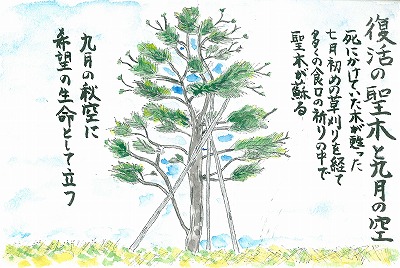 復活の聖木と九月の空
死にかけていた木が甦った
七月初めの草刈りを経て
多くの食口の祈りの中で
聖木が蘇る
九月の秋空に
希望の生命として立つ